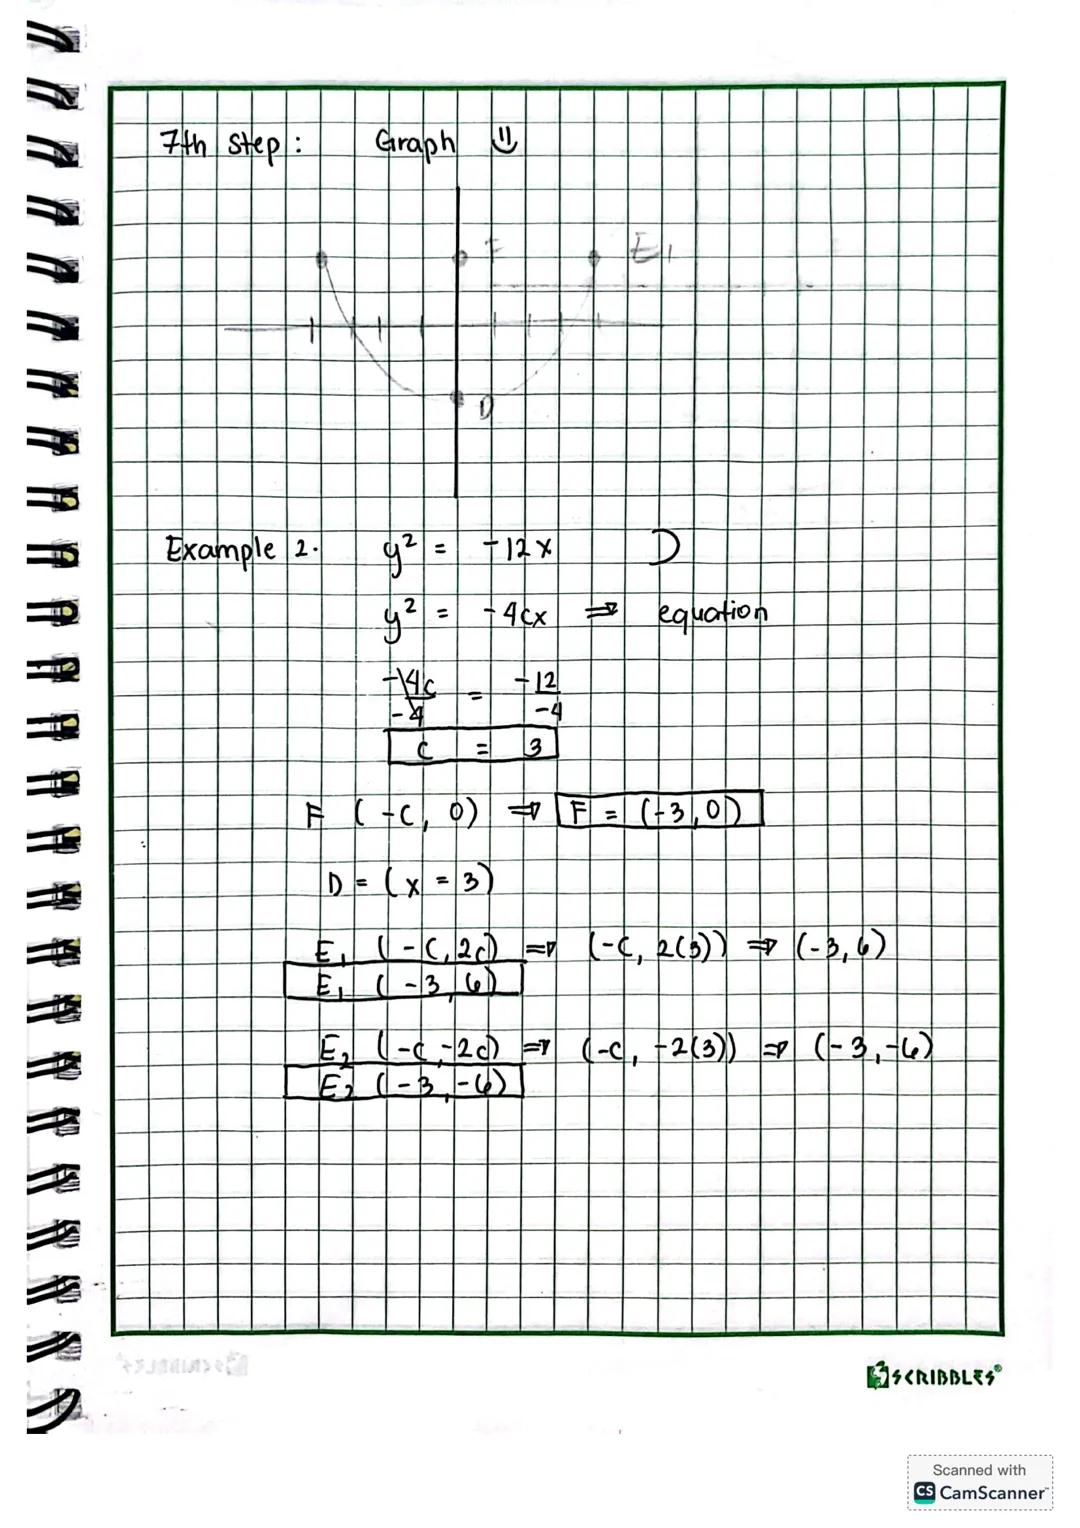 7th step: Graph
F E1
D
Example 2. y² = -12x
y² = -4cx ⇒ equation
-4c/-4 = -12/-4
c = 3
F (-c, 0) ⇒ F = (-3, 0)
D = (x = 3)
E₁ (-c, 2c) ⇒ (-c, 2(3)) ⇒ (-3, 6)
E₁ (-3, 6)
E₂ (-c, -2c) ⇒ (-c, -2(3)) ⇒ (-3, -6)
E₂ (-3, -6)
SCRIBBLES®
Scanned with
CS CamScanner™